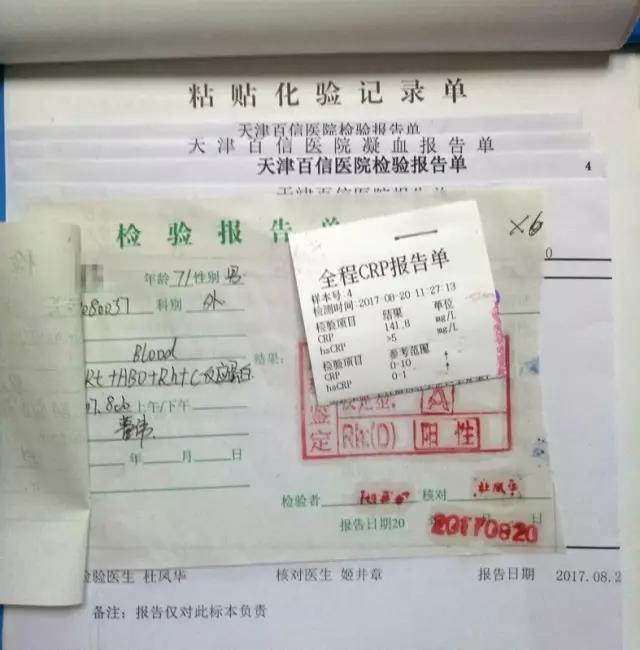 粘贴化验记录单
天津百信医院检验报告单
天津百信医院凝血报告单
天津百信医院检验报告单
4
天津百信医院报告单
检验报告单
×6
年龄 71 性别 男
080037 科别 外
Blood
Rt+ABO+Rh+C反应蛋白
上午/下午
年 月 日
结果:
全程CRP报告单
样本号:4
检测时间:2017-08-20 11:27:13
检验项目 结果 单位
CRP 141.8 mg/L
hsCRP >5 mg/L
检验项目 参考范围
CRP 0-10 ↑
hsCRP 0-1
鉴定
A
Rh:(D) 阳性
检验者 核对 杜凤华
报告日期20 日
20170820
检验医生 杜凤华 核对医生 姬井章 报告日期 2017.08.2
备注: 报告仅对此标本负责